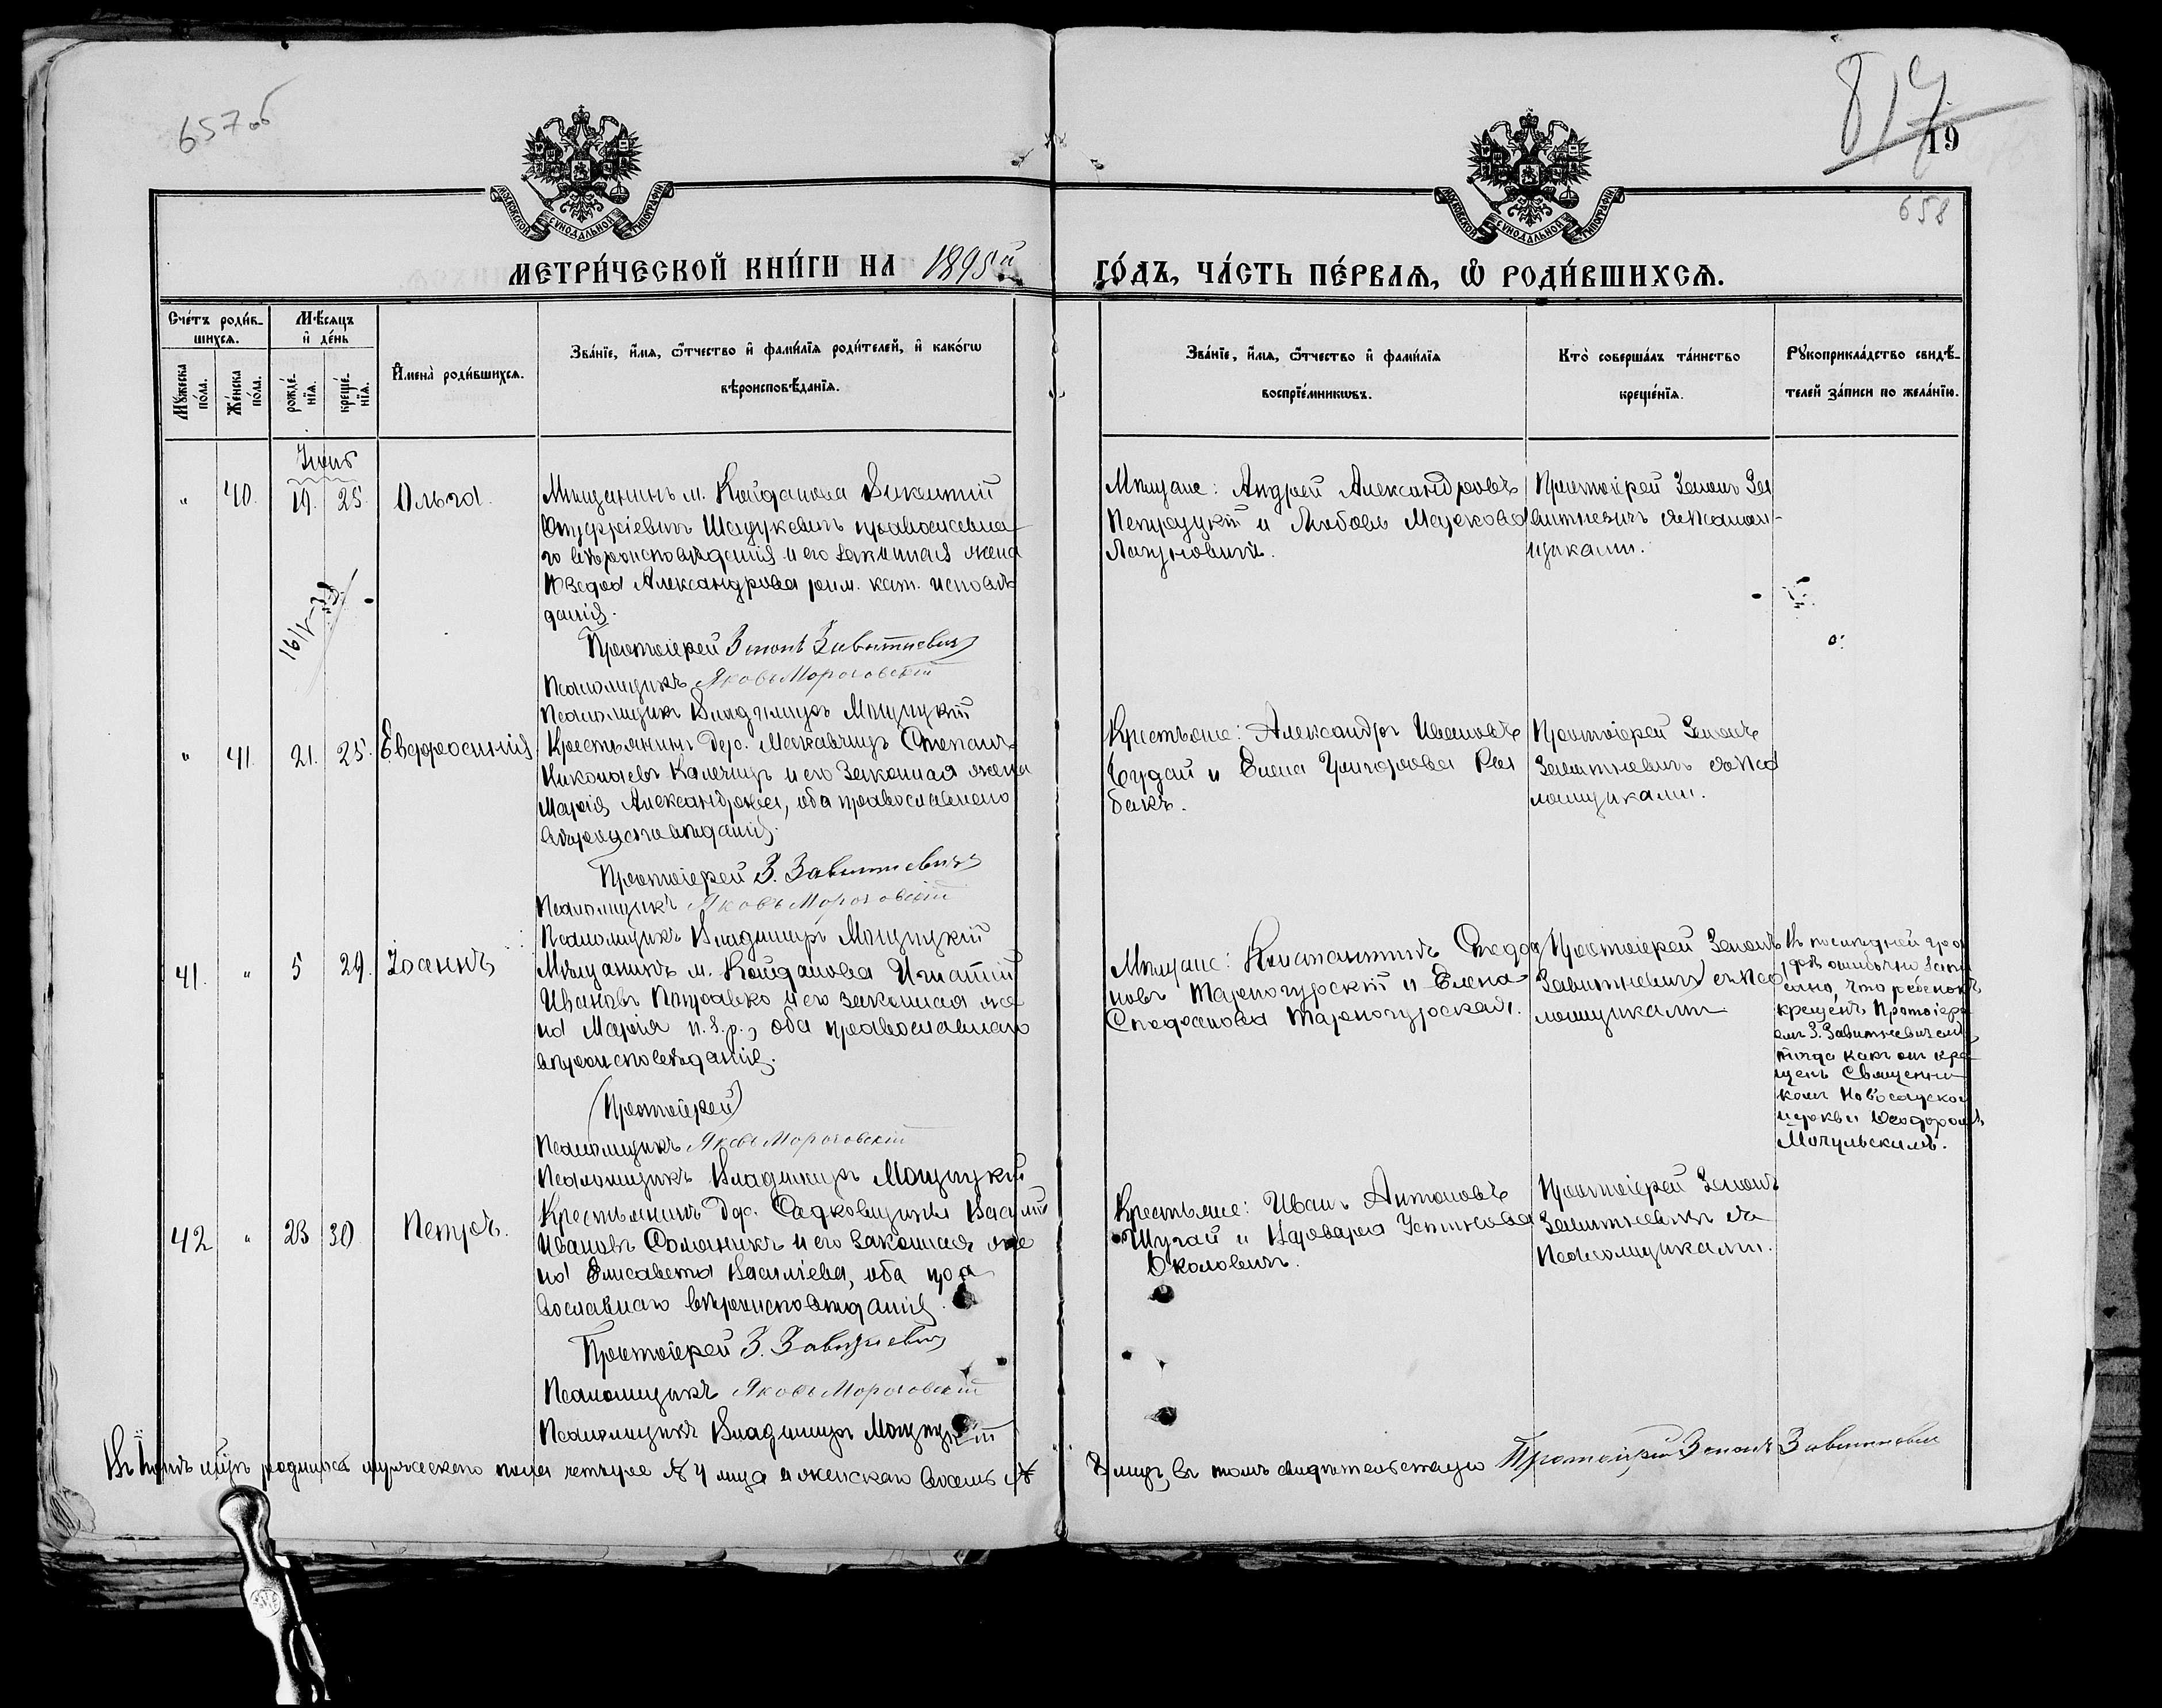 657об
817
19
658
МОСКОВСКОЙ СѴНОДАЛЬНОЙ ТИПОГРАФІИ
МОСКОВСКОЙ СѴНОДАЛЬНОЙ ТИПОГРАФІИ
МЕТРИ́ЧЕСКОЙ КНИ́ГИ НА 1895й
ГО́ДЪ, ЧА́СТЬ ПЕ́РВАѦ, Ѡ РОДИ́ВШИХСѦ.
Сче́тъ роди́в-
шихсѧ.
Мꙋ́жеска по́ла.
Же́нска по́ла.
Мѣ́сѧцъ и҆ де́нь
рожде́-нїѧ.
креще́-нїѧ.
И҆мена̀ роди́вшихсѧ.
Зва́нїе, и҆́мѧ, ѻ҆́тчество и҆ фами́лїѧ роди́телей, и҆ како́гѡ
вѣроисповѣ́данїѧ.
Зва́нїе, и҆́мѧ, ѻ҆́тчество и҆ фами́лїѧ
воспрїе́мникѡвъ.
Кто̀ соверша́лъ та́инство
креще́нїѧ.
Рꙋкоприкла́дство свидѣ́-
телей за́писи по жела́нїю.
Іюнь
" 40. 19. 25. Ольга.
Мѣщанинъ м. Койданова Викентій
Онуфріевичъ Шедукевичъ православна-
го вѣроисповѣданія и его законная жена
Александрова рим. кат. исповѣ-
данія.
Протоіерей Зенонъ Завитневичъ
Псаломщикъ Яковъ Мороговскій
Псаломщикъ Владиміръ Мощицкій
Мѣщане: Андрей Александровъ
Петруцкій и Любовь Маркова
Протоіерей Зенонъ За-
витневичъ съ псалом-
щиками.
" 41. 21. 25. Евфросинія
Крестьянинъ дер. Макавчицъ Степанъ
Николаевъ Калечицъ и его законная жена
Марія Александрова, оба православнаго
вѣроисповѣданія.
Протоіерей З. Завитневичъ
Псаломщикъ Яковъ Мороговскій
Псаломщикъ Владиміръ Мощицкій
Крестьяне: Александръ Ивановъ
Будай и Елена Григорова Ры
бакъ.
Протоіерей Зенонъ
Завитневичъ съ Пса
ломщиками.
41. " 5 29. Іоаннъ
Мѣщанинъ м. Койданова Игнатій
Ивановъ Петравко и его законная же
на Марія п. б. р., оба православнаго
вѣроисповѣданія.
(Протоіерей)
Псаломщикъ Яковъ Мороговскій
Псаломщикъ Владиміръ Мощицкій
Мѣщане: Константинъ Стефа
новъ Тарногурскій и Елена
Стефанова Тарногурская.
Протоіерей Зенонъ
Завитневичъ съ Пса
ломщиками
Въ послѣдней гра
фѣ ошибочно запи
сано, что ребенокъ
крещенъ Протоіере
емъ З. Завитневичемъ,
тогда какъ онъ кре
щенъ Священни
комъ Новосадской
церкви Ѳеодоромъ
Мочульскимъ.
42 " 23 30 Петръ.
Крестьянинъ дер. Садковщины Василій
Ивановъ Соляникъ и его законная же
на Елисавета Васильева, оба пра
вославнаго вѣроисповѣданія.
Протоіерей З. Завитневичъ
Псаломщикъ Яковъ Мороговскій
Псаломщикъ Владиміръ Мощицкій
Крестьяне: Иванъ Антоновъ
Шугай и Варвара Устинова
Околовичъ.
Протоіерей Зенонъ
Завитневичъ съ
Псаломщиками.
Въ Іюнѣ мѣс. родилось мужескаго пола четыре № 4 лица и женскаго восемь №
8 лицъ, въ томъ свидѣтельствую Протоіерей Зенонъ Завитневичъ